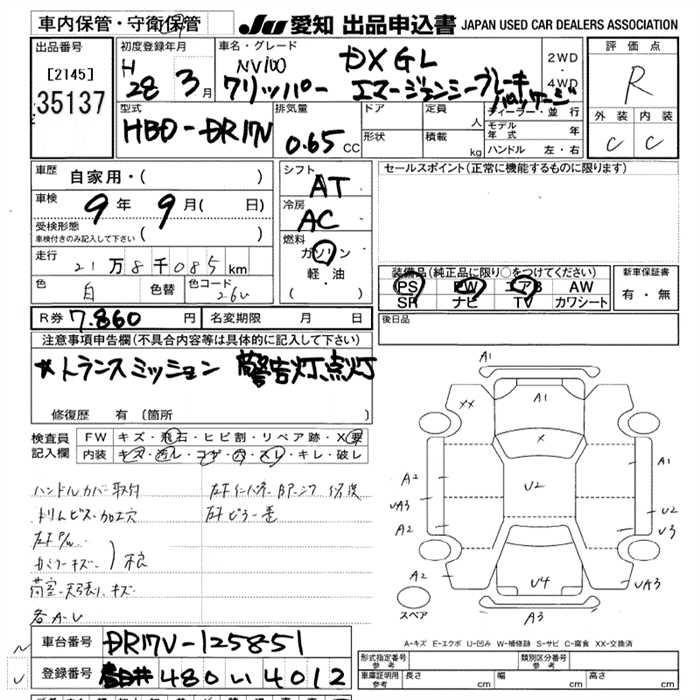 車内保管・守衛保管
JU 愛知 出品申込書 JAPAN USED CAR DEALERS ASSOCIATION
出品番号
[2145]
35137
初度登録年月
H 28 3月
車名・グレード
NV100 DX GL
クリッパー エマージェンシーブレーキ
パッケージ
2WD
4WD
評価点
R
外装 内装
C C
型式
HBD-DR17V
排気量
0.65 CC
ドア
形状
定員 人
積載 kg
ディーラー・並行
モデル年式 年
ハンドル 左・右
車歴 自家用・( )
車検 9年 9月( 日)
受検形態
車検付きのみ記入して下さい ( )
走行 21万8千085km
色 白 色替 色コード 26U
シフト AT
冷房 AC
燃料
ガソリン
軽・油
( )
セールスポイント(正常に機能するものに限ります)
装備品(純正品に限り○をつけてください)
PS PW エアB AW
SR ナビ TV カワシート
新車保証書
有・無
R券 7.860円 名変期限 月 日
後日品
注意事項申告欄(不具合内容等は具体的に記入して下さい)
*トランスミッション 警告灯点灯
修復歴 有 (箇所
検査員記入欄
FW キズ・飛石・ヒビ割・リペア跡・X要
内装 キズ・汚レ・コゲ・穴・スレ・キレ・破レ
ハンドルカバー取付
トリムビス・加工穴
荷室・天張り、キズ
各A・U
A1
XX
A1
X
A2
A1
U2
UA3
A2
U2
U3
A2
U4
UA3
A3
スペア
A-キズ E-エクボ U-凹み W-補修跡 S-サビ C-腐食 XX-交換済
車台番号 DR17V-125851
登録番号 480 い 4012
形式指定番号
参考
類別区分番号
参考
車庫証明用
参考
長さ cm
幅 cm
高さ cm